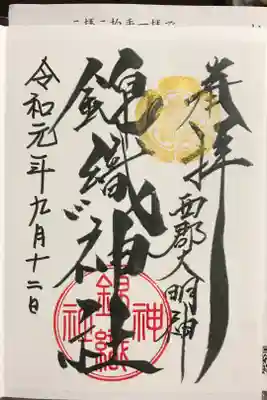 奉拝
西郡大明神
錦織神社
令和元年九月十二日
錦織神社